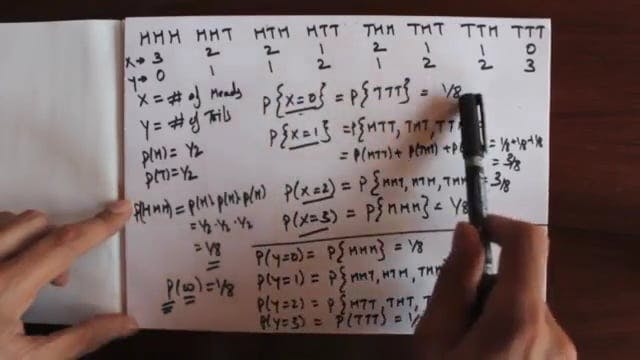 HHH HHT HTH HTT THH THT TTH TTT
X→ 3 2 2 1 2 1 1 0
Y→ 0 1 1 2 1 2 2 3
X = # of Heads
Y = # of Tails
P(H) = 1/2
P(T) = 1/2
P(HHH) = P(H).P(H).P(H)
= 1/2 . 1/2 . 1/2
= 1/8
P(ω) = 1/8
P{X=0} = P{TTT} = 1/8
P{X=1} = P{HTT, THT, TTH
= P(HTT) + P(THT) + P( = 1/8+1/8+1/8
= 3/8
P(X=2) = P{HHT, HTH, THH = 3/8
P(X=3) = P{HHH} = 1/8
P(Y=0) = P{HHH} = 1/8
P(Y=1) = P{HHT, HTH, THH
P(Y=2) = P{HTT, THT, T
P(Y=3) = P(TTT) = 1/